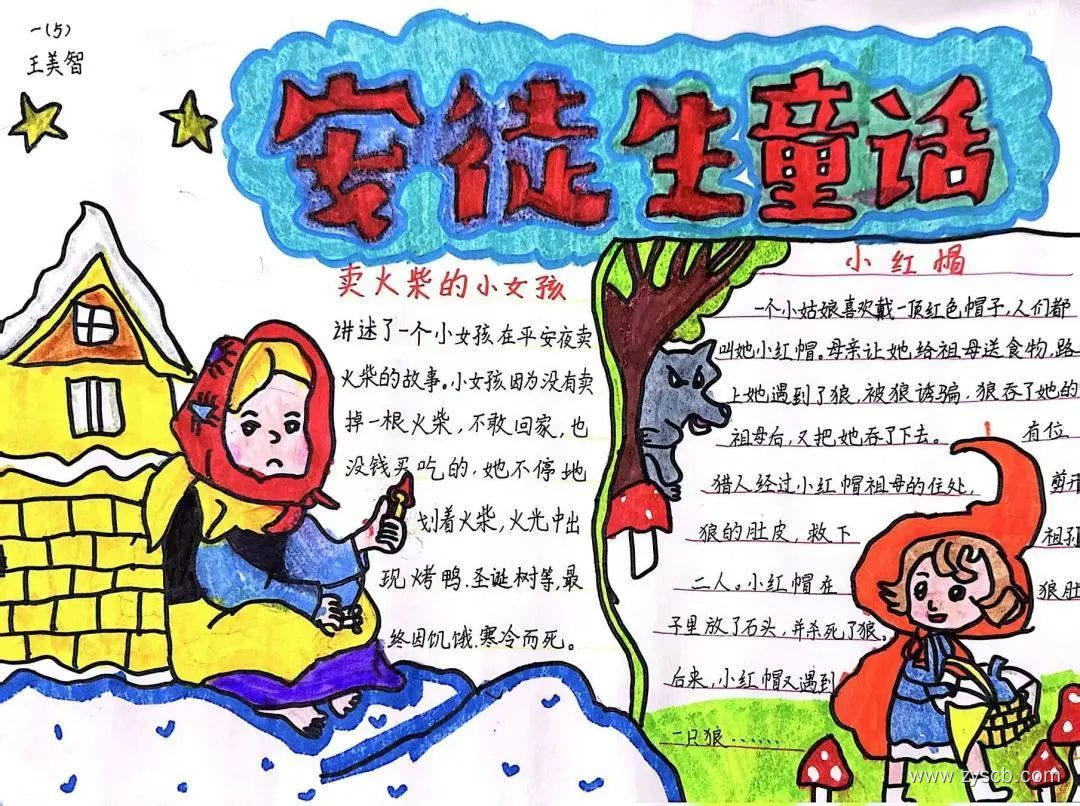 一(5)
王美智
安徒生童话
卖火柴的小女孩
讲述了一个小女孩在平安夜卖
火柴的故事。小女孩因为没有卖
掉一根火柴，不敢回家，也
没钱买吃的，她不停地
划着火柴，火光中出
现烤鸭.圣诞树等，最
终因饥饿.寒冷而死。
小红帽
一个小姑娘喜欢戴一顶红色帽子，人们都
叫她小红帽。母亲让她给祖母送食物，路
上她遇到了狼，被狼诱骗，狼吞了她的
祖母后，又把她吞了下去。 有位
猎人经过小红帽祖母的住处， 剪开
狼的肚皮，救下 祖孙
二人。小红帽在 狼肚
子里放了石头，并杀死了狼。
后来，小红帽又遇到
一只狼……
www.zyscb.com